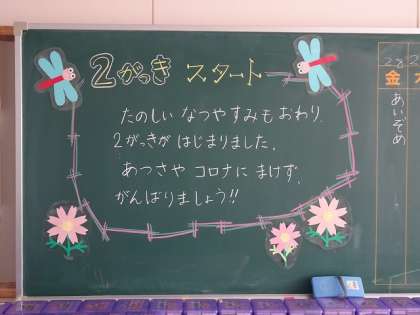 2がっき スタート
たのしい なつやすみも おわり
2がっきが はじまりました.
あつさや コロナに まけず.
がんばりましょう!!
28
金
あいぞめ
2